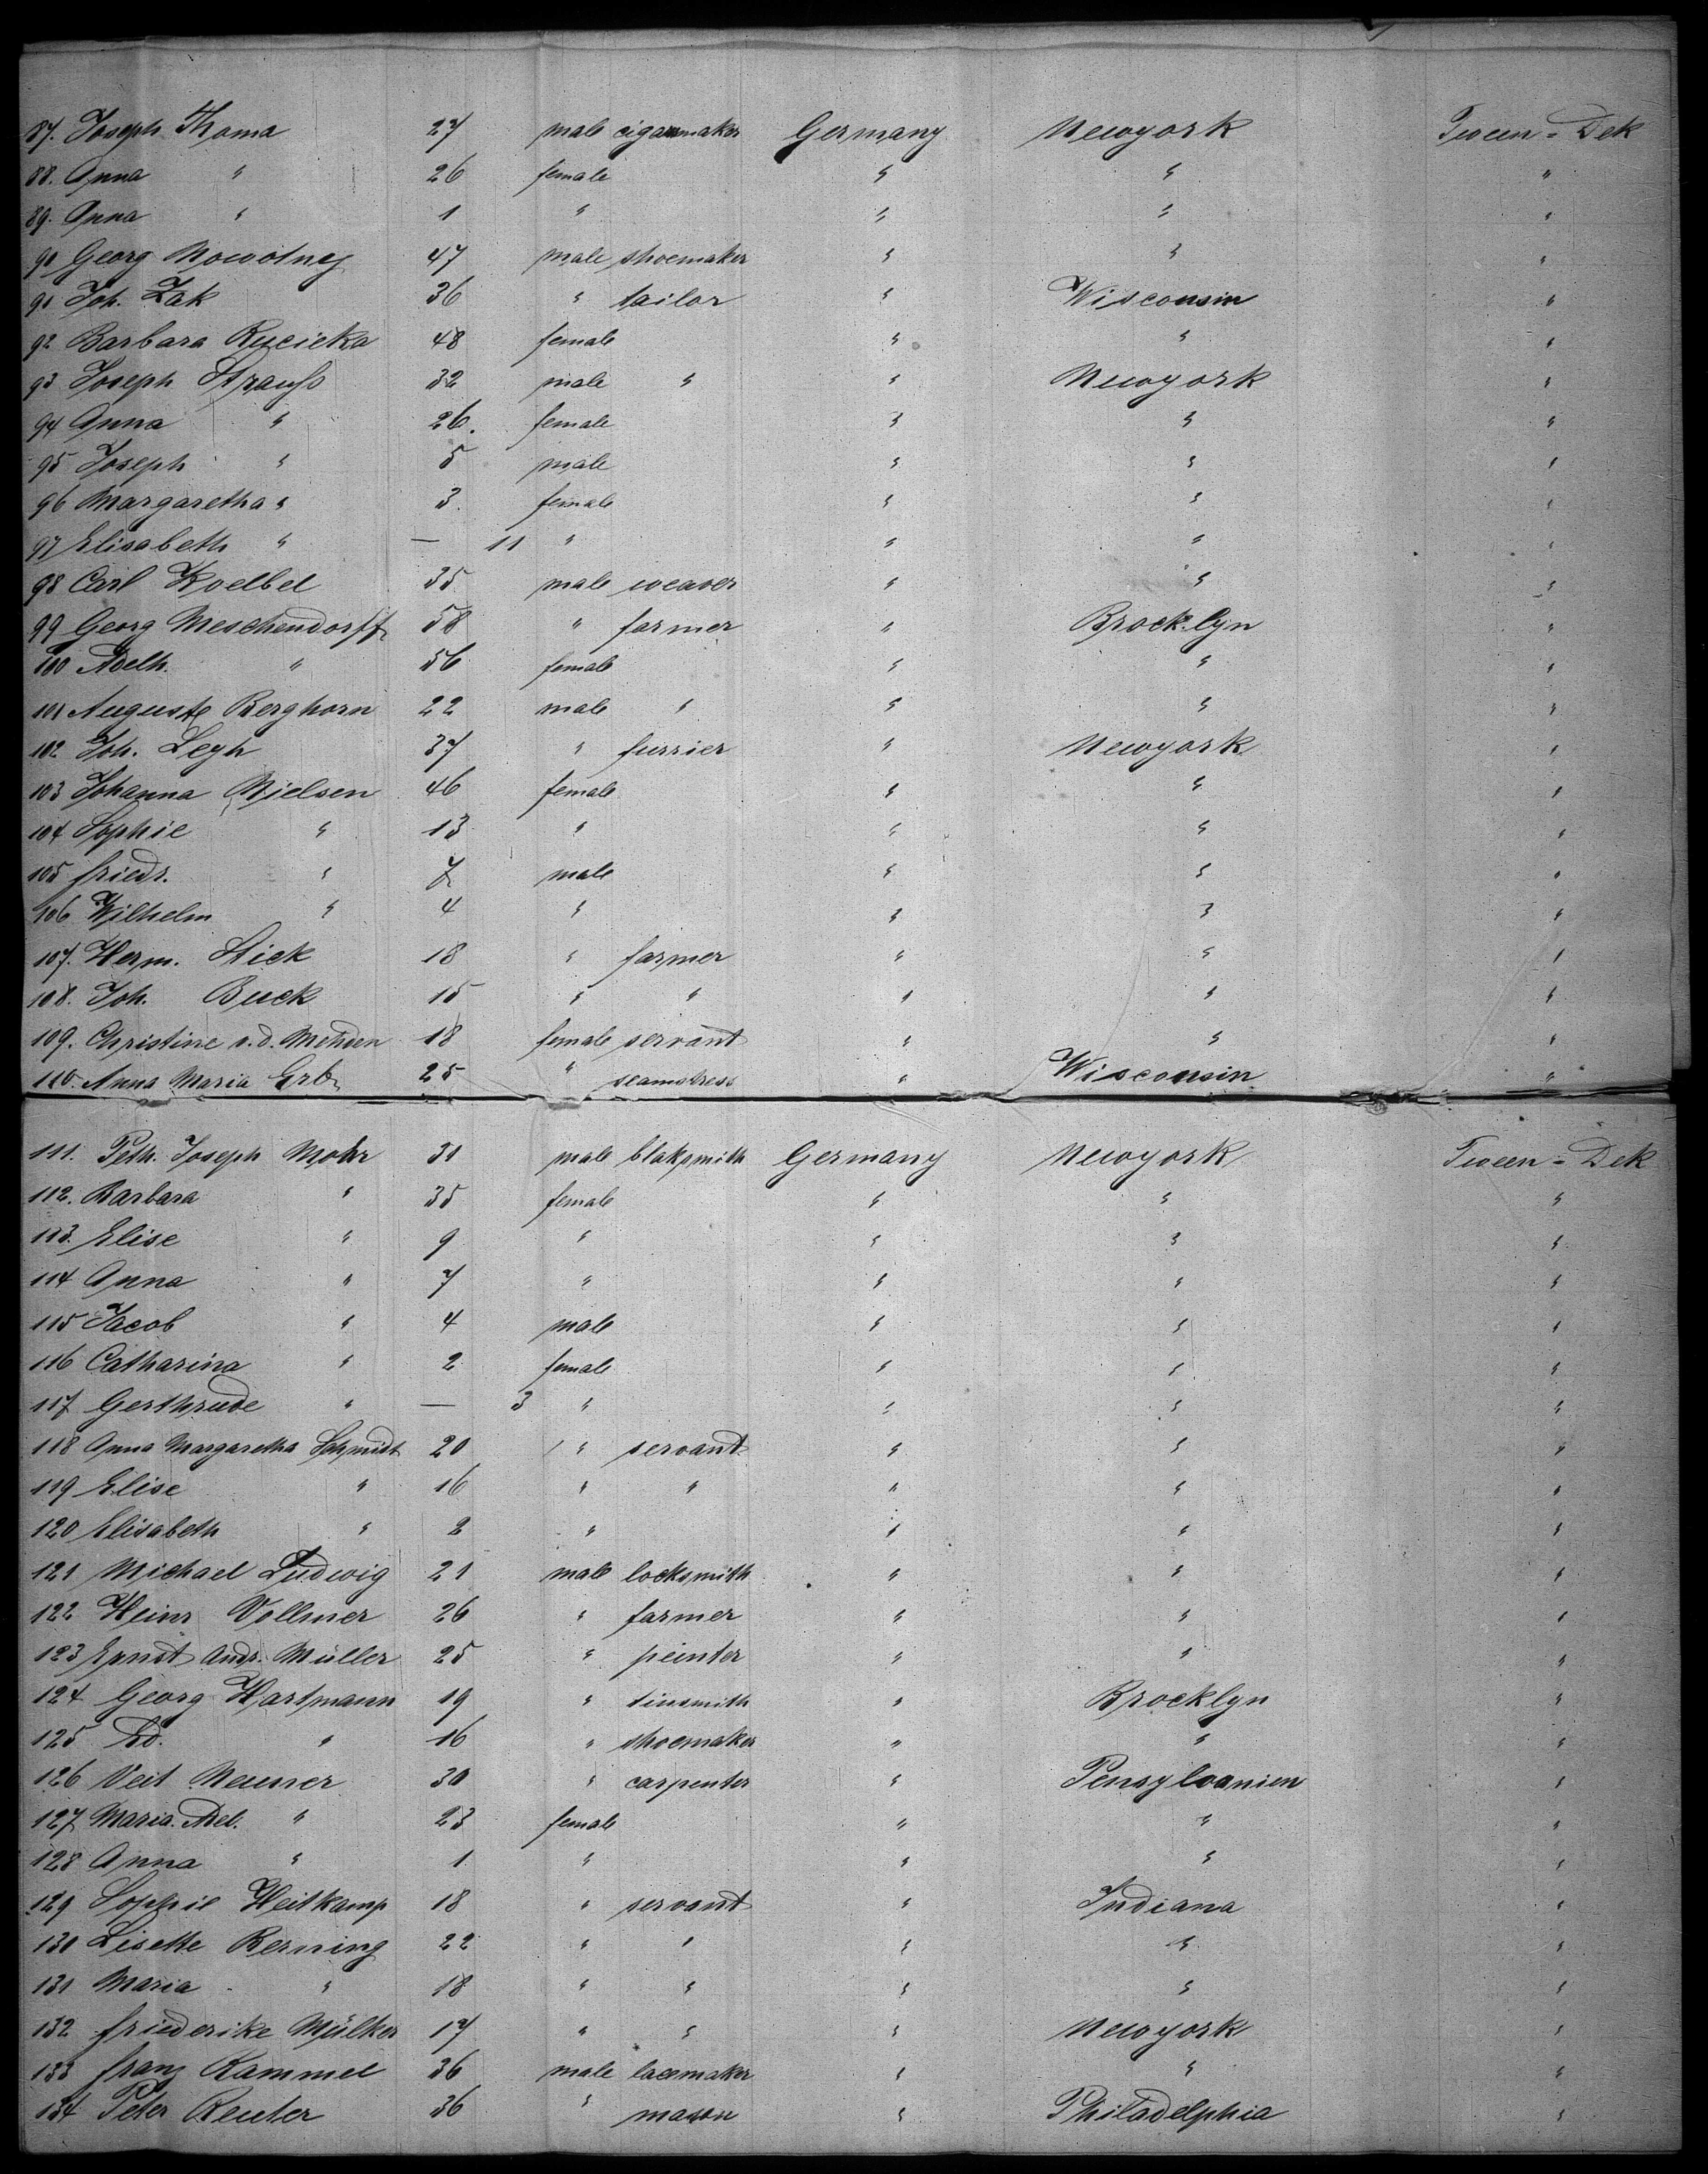 87. Joseph Thoma 27 male cigarmaker Germany Newyork Tween-Dek
88. Anna " 26 female " " "
89. Anna " 1 " " " "
90 Georg Nowotney 47 male shoemaker " " "
91 Joh. Zak 36 " tailor " Wisconsin "
92 Barbara Rucicka 48 female " " "
93 Joseph Strauß 32 male " " Newyork "
94 Anna " 26. female " " "
95 Joseph " 5 male " " "
96 Margaretha " 3. female " " "
97 Elisabeth " — 11 " " " "
98 Carl Koelbel 35 male weaver " " "
99 Georg Meschendorff 58 " farmer " Brocklyn "
100 Adelh. " 56 female " " "
101 Auguste Berghorn 22 male " " " "
102 Joh. Legh 37 " furrier " Newyork "
103 Johanna Nielsen 46 female " " "
104 Sophie " 13 " " " "
105 Friedr. " 7 male " " "
106 Wilhelm " 4 " " " "
107. Herm. Stick 18 " farmer " " "
108. Joh. Buck 15 " " " " "
109. Christine v.d. Mehden 18 female servant " " "
110. Anna Maria Erb 25 " seamstress " Wisconsin "
111. Peth. Joseph Mohr 31 male blaksmith Germany Newyork Tween-Dek
112. Barbara " 35 female " " "
113. Elise " 9 " " " "
114 Anna " 7 " " " "
115 Jacob " 4 male " " "
116 Catharina " 2 female " " "
117 Gerthrude " — 3 " " " "
118 Anna Margaretha Schmidt 20 " servant " " "
119 Elise " 16 " " " " "
120 Elisabeth " 2 " " " "
121 Michael Ludwig 21 male locksmith " " "
122 Heinr Vollmer 26 " farmer " " "
123 Ernst Andr. Müller 25 " peinter " " "
124 Georg Hartmann 19 " tinsmith " Brocklyn "
125 Ed. " 16 " shoemaker " " "
126 Veit Neuner 30 " carpenter " Pensylvanien "
127 Maria Adel. " 23 female " " "
128 Anna " 1 " " " "
129 Sophie Heitkamp 18 " servant " Indiana "
130 Lisette Berning 22 " " " " "
131 Maria " 18 " " " " "
132 Friederike Mülker 17 " " " Newyork "
133 Franz Rammel 36 male lacemaker " " "
134 Peter Reuter 36 " mason " Philadelphia "